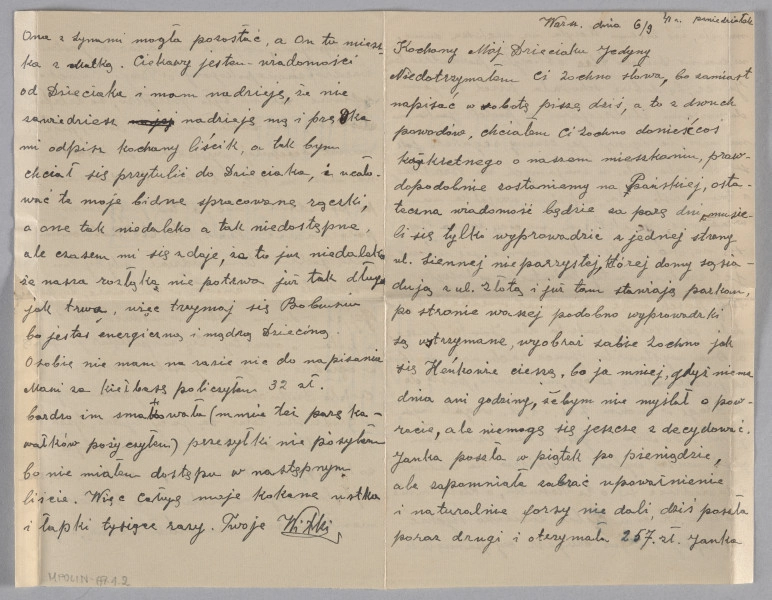 Wasza. dnia 6/9 41 r. poniedziałek
Kochany Mój Dzieciaku Jedyny
Niedotrzymałem Ci Zochno słowa, bo zamiast
napisać w sobotę piszę dziś, a to z dwuch
powodów, chciałem Ci Zochno donieść coś
kąkretnego o naszem mieszkaniu, praw-
dopodobnie zostaniemy na Pańskiej, osta-
teczna wiadomość będzie za parę dni, musie-
li się tylko wyprowadzić z jednej strony
ul. Siennej nieparzystej, której domy sąsia-
dują z ul. Złotą i już tam stawiają parkan,
po stronie waszej podobno wyprowadzki
są wstrzymane, wyobraź sobie Zochno jak
się Heńkowie cieszą, bo ja mniej, gdyż niema
dnia ani godziny, żebym nie myślał o pow-
rocie, ale niemogę się jeszcze zdecydować.
Janka poszła w piątek po pieniądze,
ale zapomniała zabrać upoważnienie
i naturalnie forsy nie dali, dziś poszła
poraz drugi i otrzymała 257.zł. Janka
Ona z synami mogła pozostać, a On tu miesz-
ka z matką. Ciekawy jestem wiadomości
od Dzieciaka i mam nadzieję, że nie
zawiedziesz nadzieją mą i prędko
mi odpisz kochany liścik, a tak bym
chciał się przytulić do Dzieciaka, i ucało-
wać te moje bidne spracowane rączki,
a one tak niedaleko a tak niedostępne,
ale czasem mi się zdaje, że to już niedaleko
że nasza rozłąka nie potrwa już tak długo
jak trwa, więc trzymaj się Bobusiu
bo jesteś energiczną i mądrą Dzieciną.
O sobie nie mam na razie nic do napisania
Mani za kiełbasę policzyłem 32 zł.
bardzo im smakowała (mnie też parę ka-
wałków pożyczyłem) przesyłki nie posyłałem
bo nie miałem dostępu w następnym
liście. Więc całuję moje kochane ustka
i łapki tysiące razy. Twoje
MPOLIN-A9.1.2